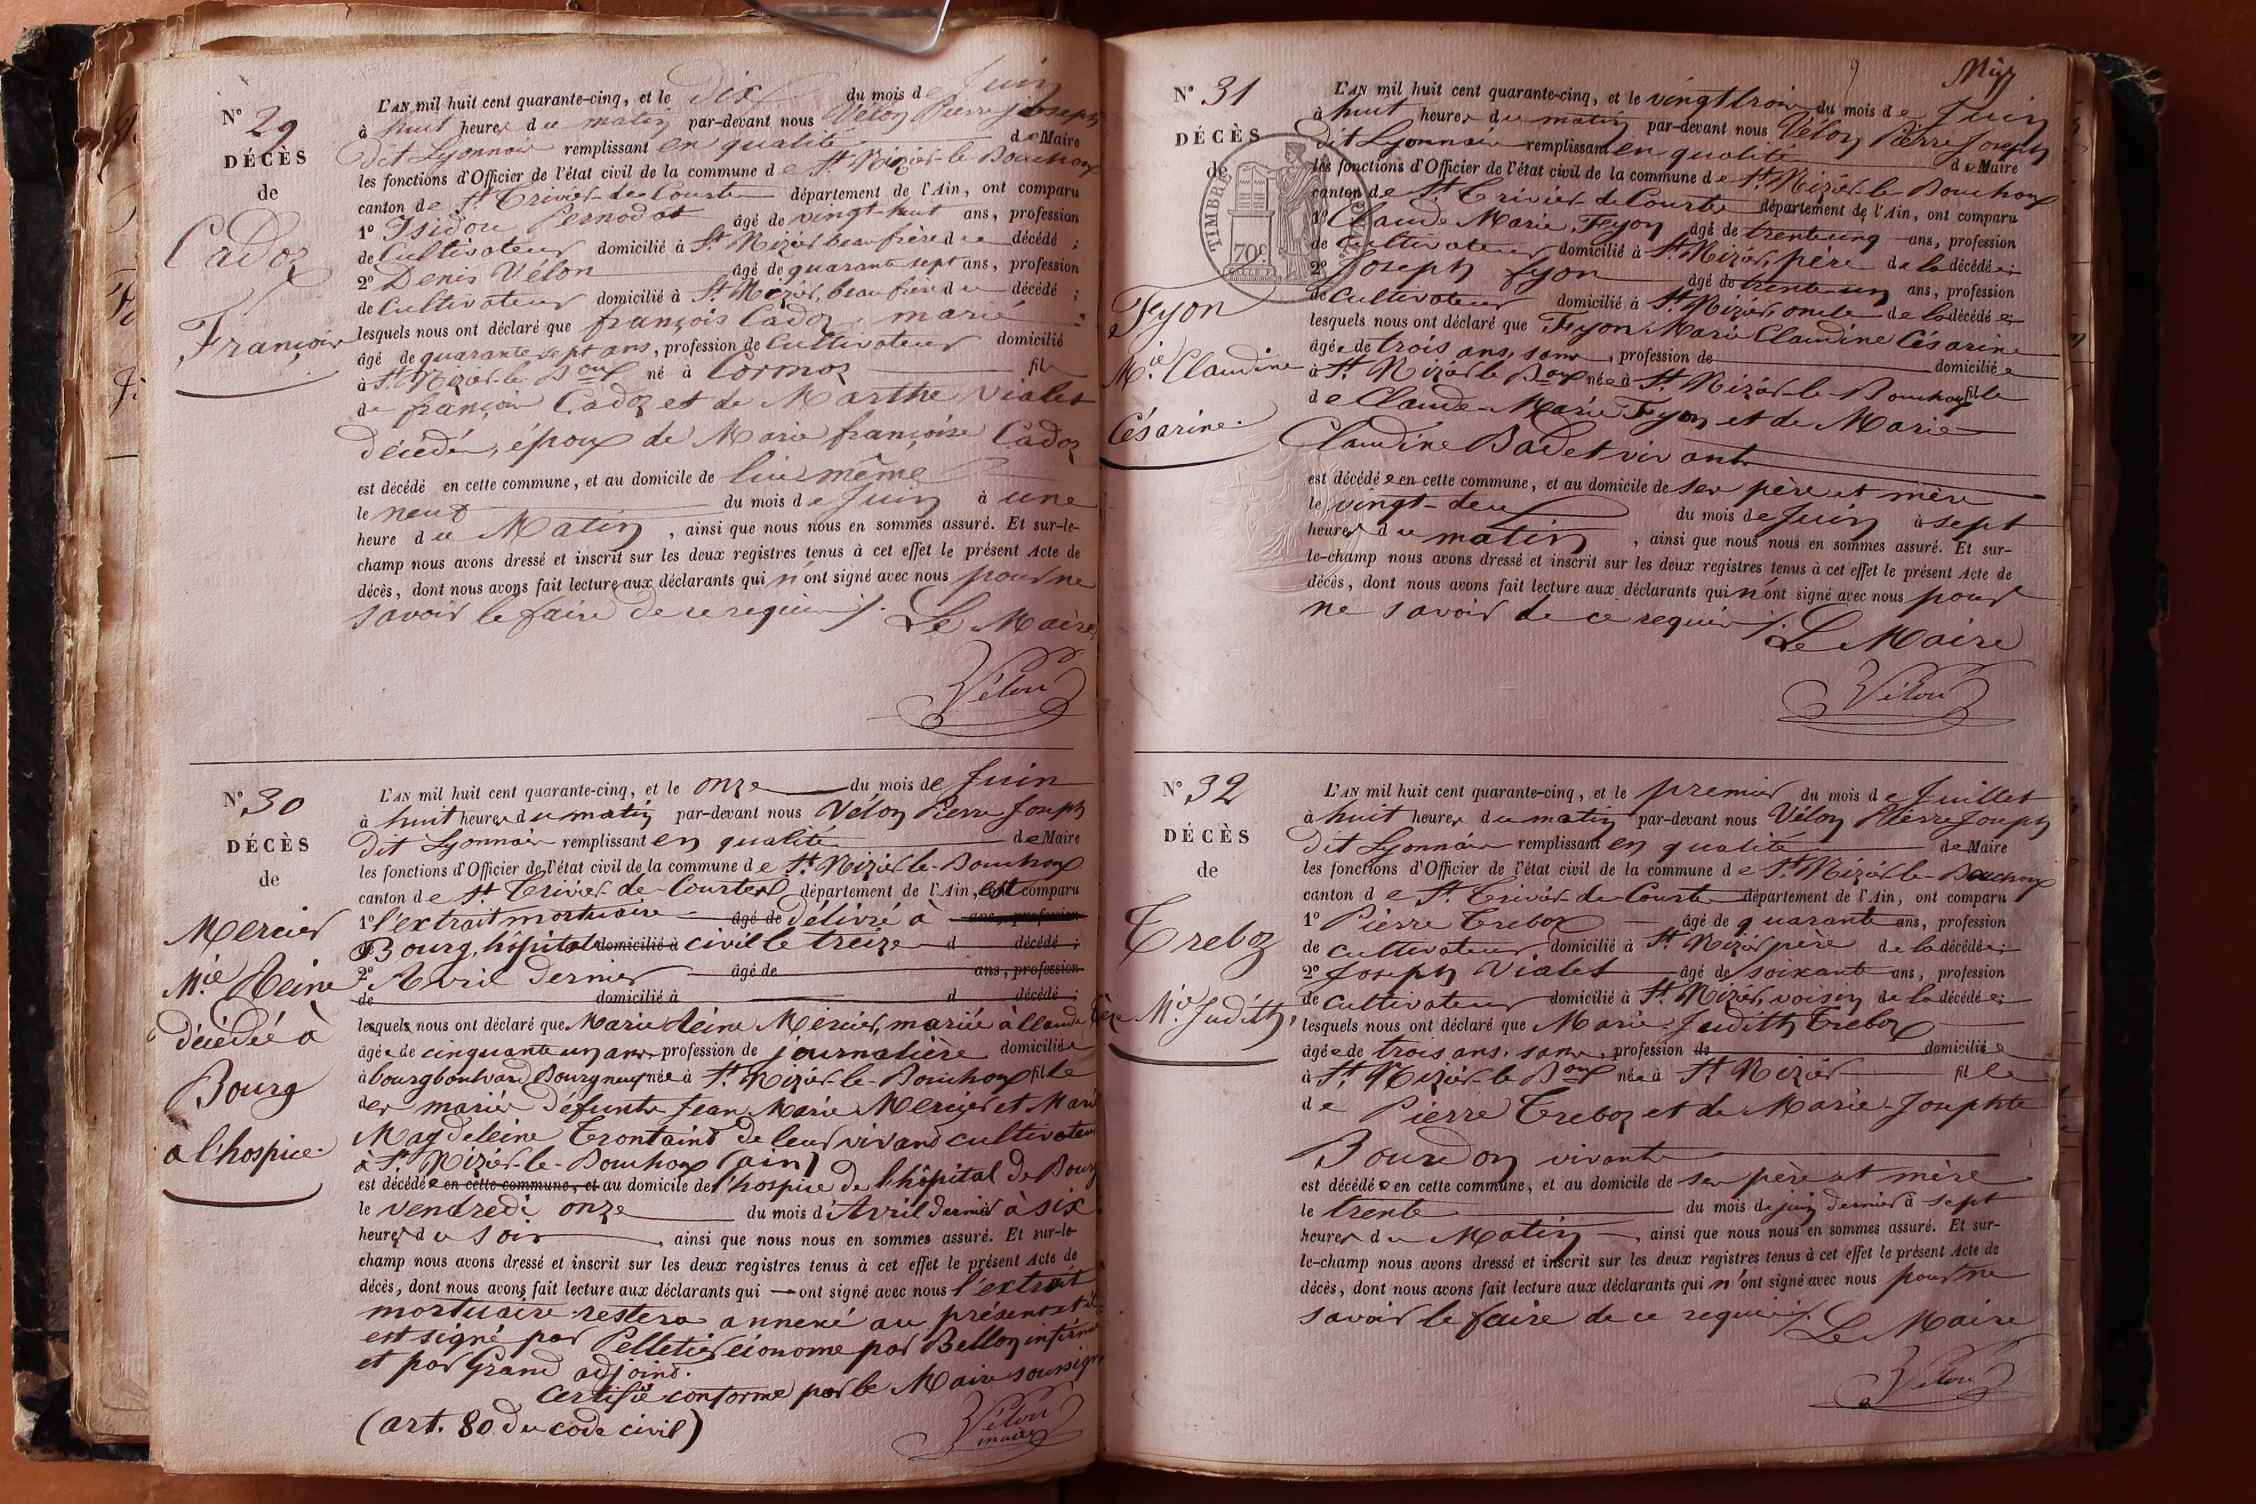 N° 29
DÉCÈS
de
Cadoz
François
L'AN mil huit cent quarante-cinq, et le dix du mois de Juin
à huit heures du matin par-devant nous Vélon Pierre Joseph
dit Lyonnais remplissant en qualité de Maire
les fonctions d'Officier de l'état civil de la commune de St. Nizier-le-Bouchoux
canton de St Trivier-de-Courtes département de l'Ain, ont comparu
1° Isidore Pernodat âgé de vingt-huit ans, profession
de Cultivateur domicilié à St Nizier beau frère du décédé ;
2° Denis Vélon âgé de quarante sept ans, profession
de Cultivateur domicilié à St Nizier, beau frère du décédé ;
lesquels nous ont déclaré que françois Cadoz, marié
âgé de quarante sept ans, profession de Cultivateur domicilié
à St Nizier-le-Boux né à Cormoz fils
de françois Cadoz et de Marthe Vialet
décédés, époux de Marie françoise Cadoz
est décédé en cette commune, et au domicile de lui même
le neuf du mois de Juin à une
heure du Matin, ainsi que nous nous en sommes assuré. Et sur-le-
champ nous avons dressé et inscrit sur les deux registres tenus à cet effet le présent Acte de
décès, dont nous avons fait lecture aux déclarants qui n'ont signé avec nous pour ne
savoir le faire de ce requis ./.
Le Maire
Vélon
N° 30
DÉCÈS
de
Mercier
Mie Reine
décédée à
Bourg
a l'hospice.
L'AN mil huit cent quarante-cinq, et le onze du mois de Juin
à huit heures du matin par-devant nous Vélon Pierre Joseph
dit Lyonnais remplissant en qualité de Maire
les fonctions d'Officier de l'état civil de la commune de St. Nizier-le-Bouchoux
canton de St. Trivier-de-Courtes département de l'Ain, est comparu
1° l'extrait mortuaire âgé de délivré à ans, profession
de Bourg, hôpital domicilié à civil le treize d décédé ;
2° Avril dernier âgé de ans, profession
de domicilié à d décédé ;
lesquels nous ont déclaré que Marie Reine Mercier, mariée à Claude
âgée de cinquante un ans profession de journalière domiciliée
à bourg boulvard Bourgneuf née à St. Nizier-le-Bouchoux fille
des mariés défunts Jean Marie Mercier et Marie
Magdeleine Trontaind de leur vivand cultivateurs
à St Nizier-le-Bouchoux (ain)
est décédée en cette commune, et au domicile de l'hospice de l'hôpital de Bourg
le vendredi onze du mois d'Avril dernier à six
heures du soir, ainsi que nous nous en sommes assuré. Et sur-le-
champ nous avons dressé et inscrit sur les deux registres tenus à cet effet le présent Acte de
décès, dont nous avons fait lecture aux déclarants qui ont signé avec nous l'extrait
mortuaire restera annexé au présent et
est signé par Pelletier économe par Bellon infirmier
et par Grand adjoind.
Certifié conforme par le Maire soussigné
(art. 80 du code civil)
Vélon
maire
9
N° 31
DÉCÈS
de
TIMBRE
70c.
Feyon
Mie. Claudine
Césarine.
L'AN mil huit cent quarante-cinq, et le vingt trois du mois de Juin
à huit heures du matin par-devant nous Vélon Pierre Joseph
dit Lyonnais remplissant en qualité de Maire
les fonctions d'Officier de l'état civil de la commune de St. Nizier-le-Bouchoux
canton de St Trivier de Courtes département de l'Ain, ont comparu
1° Claude Marie Feyon âgé de trente cinq ans, profession
de Cultivateur domicilié à St. Nizier, père de la décédée ;
2° Joseph feyon âgé de trente-un ans, profession
de Cultivateur domicilié à St. Nizier, oncle de la décédée ;
lesquels nous ont déclaré que Feyon Marie Claudine Césarine
âgée de trois ans, sans, profession de domiciliée
à St. Nizier le Boux née à St. Nizier-le-Bouchoux fille
de Claude-Marie Feyon et de Marie
Claudine Badet vivants
est décédée en cette commune, et au domicile de ses père et mère
le vingt-deux du mois de Juin à sept
heures du matin, ainsi que nous nous en sommes assuré. Et sur-
le-champ nous avons dressé et inscrit sur les deux registres tenus à cet effet le présent Acte de
décès, dont nous avons fait lecture aux déclarants qui n'ont signé avec nous pour
ne savoir de ce requis ./. Le Maire
Vélon
N° 32
DÉCÈS
de
Treboz
Mie Judith,
L'AN mil huit cent quarante-cinq, et le premier du mois de Juillet
à huit heures du matin par-devant nous Vélon Pierre Joseph
dit Lyonnais remplissant en qualité de Maire
les fonctions d'Officier de l'état civil de la commune de St. Nizier-le-Bouchoux
canton de St. Trivier-de-Courtes département de l'Ain, ont comparu
1° Pierre Treboz âgé de quarante ans, profession
de cultivateur domicilié à St. Nizier père de la décédée ;
2° Joseph Vialet âgé de soixante ans, profession
de cultivateur domicilié à St. Nizier, voisin de la décédée ;
lesquels nous ont déclaré que Marie-Judith Treboz
âgée de trois ans, sans, profession de domiciliée
à St. Nizier-le-Boux née à St Nizier fille
de Pierre Treboz et de Marie-Josephte
Bourdon vivants
est décédée en cette commune, et au domicile de ses père et mère
le trente du mois de juin dernier à sept
heures du Matin, ainsi que nous nous en sommes assuré. Et sur-
le-champ nous avons dressé et inscrit sur les deux registres tenus à cet effet le présent Acte de
décès, dont nous avons fait lecture aux déclarants qui n'ont signé avec nous pour ne
savoir le faire de ce requis ./. Le Maire
Vélon